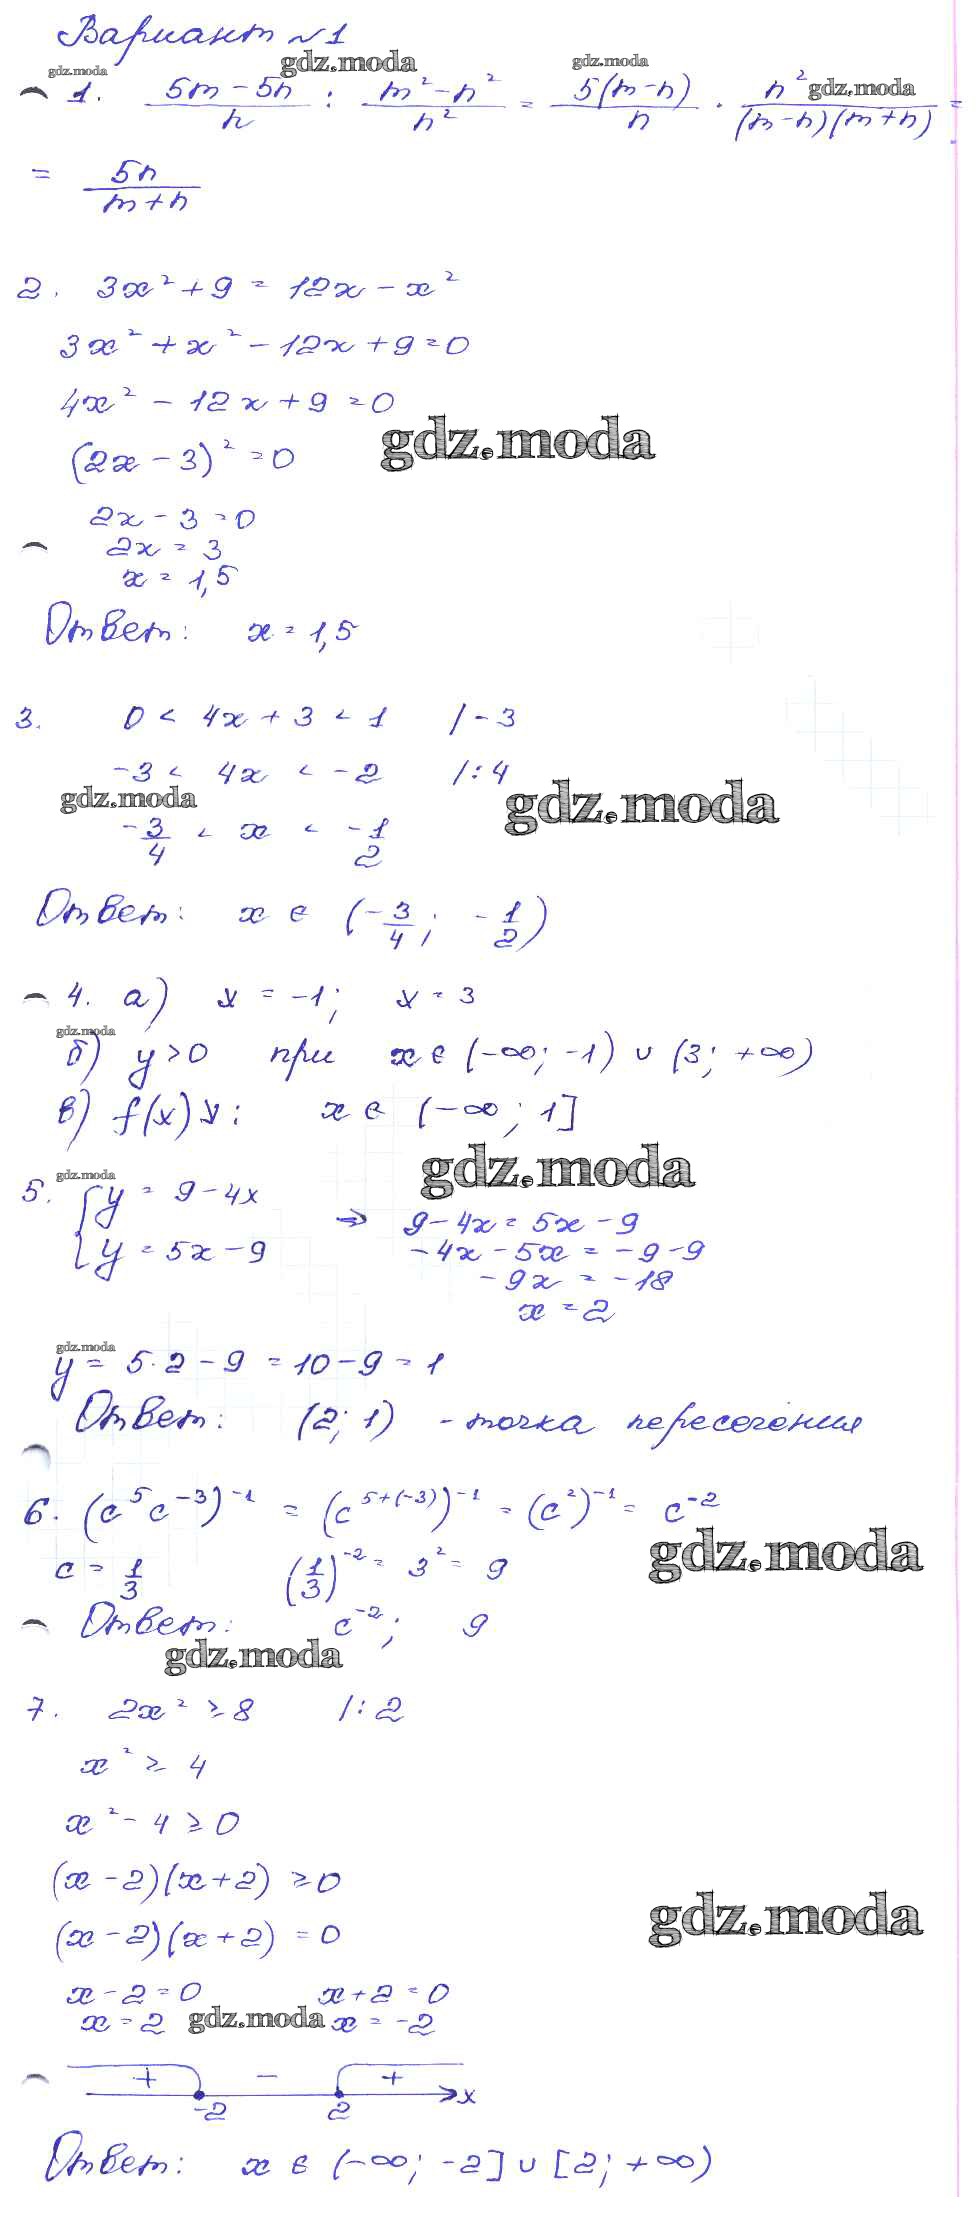 Вариант №1
gdz.moda gdz.moda gdz.moda
1. (5m - 5n)/n : (m² - n²)/n² = 5(m-n)/n · n²/((m-n)(m+n)) = gdz.moda
= 5n/(m+n)
2. 3x² + 9 = 12x - x²
3x² + x² - 12x + 9 = 0
4x² - 12x + 9 = 0
gdz.moda
(2x - 3)² = 0
2x - 3 = 0
2x = 3
x = 1,5
Ответ: x = 1,5
3. 0 < 4x + 3 < 1 | -3
-3 < 4x < -2 | : 4
gdz.moda gdz.moda
-3/4 < x < -1/2
Ответ: x ∈ (-3/4; -1/2)
4. а) x = -1; x = 3
gdz.moda
б) y > 0 при x ∈ (-∞; -1) ∪ (3; +∞)
в) f(x)↘: x ∈ (-∞; 1]
gdz.moda gdz.moda
5. { y = 9 - 4x
{ y = 5x - 9
⇒ 9 - 4x = 5x - 9
-4x - 5x = -9 - 9
-9x = -18
x = 2
gdz.moda
y = 5·2 - 9 = 10 - 9 = 1
Ответ: (2; 1) - точка пересечения
6. (c⁵c⁻³)⁻¹ = (c⁵⁺⁽⁻³⁾)⁻¹ = (c²)⁻¹ = c⁻²
gdz.moda
c = 1/3 (1/3)⁻² = 3² = 9
Ответ: c⁻²; 9
gdz.moda
7. 2x² ≥ 8 | : 2
x² ≥ 4
x² - 4 ≥ 0
(x - 2)(x + 2) ≥ 0
gdz.moda
(x - 2)(x + 2) = 0
x - 2 = 0 x + 2 = 0
x = 2 gdz.moda x = -2
+ - +
-2 2 x
Ответ: x ∈ (-∞; -2] ∪ [2; +∞)